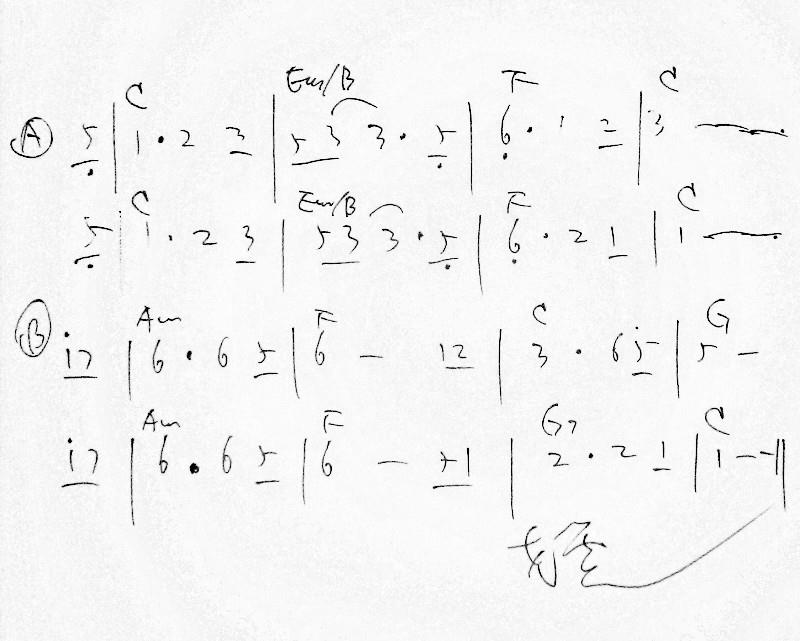 C Em/B F C
A 5 | 1 · 2 3 | 5 3 3 · 5 | 6 · 1 2 | 3 —
C Em/B F C
5 | 1 · 2 3 | 5 3 3 · 5 | 6 · 2 1 | 1 —
Am F C G
B i7 | 6 · 6 5 | 6 - 12 | 3 · 6 5 | 5 -
Am F G7 C
i7 | 6 · 6 5 | 6 - 51 | 2 · 2 1 | 1 - - ||